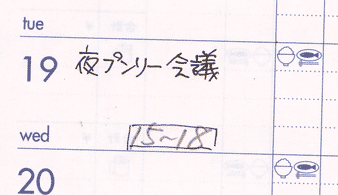 tue
19 夜プンリー会議
wed 15~18
20